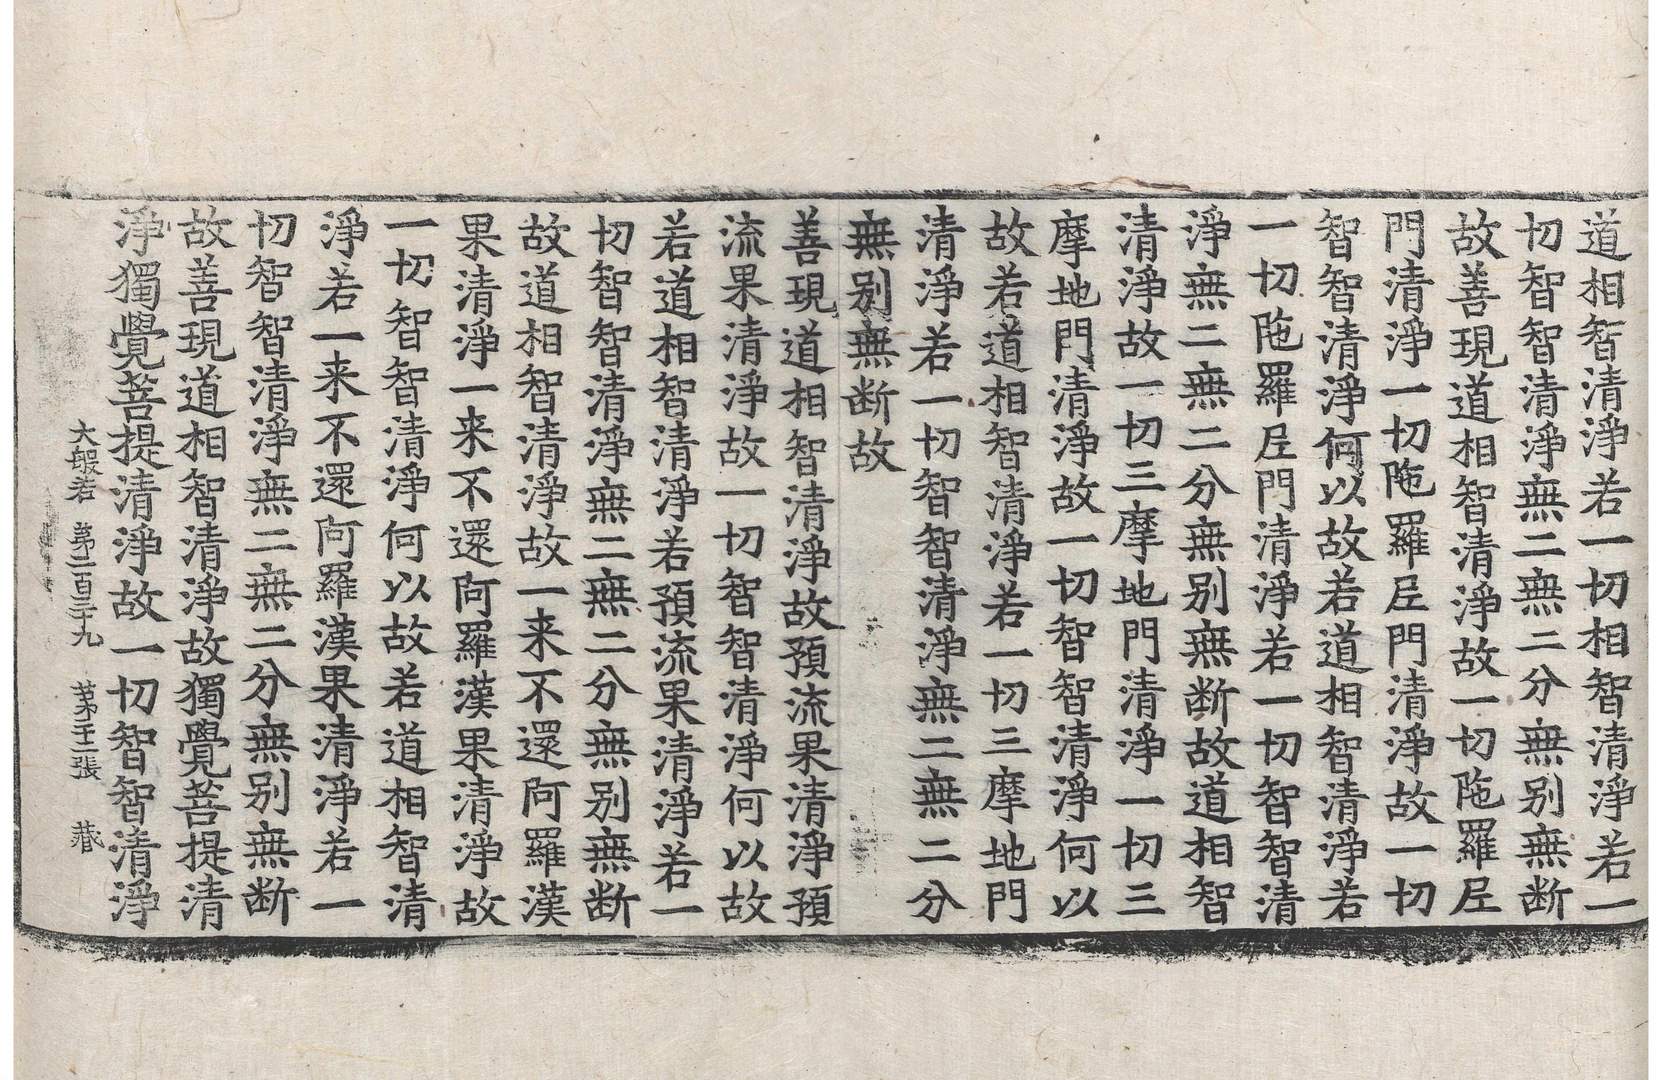 道相智清淨若一切相智清淨若一
切智智清淨無二無二分無别無断
故善現道相智清淨故一切陁羅尼
門清淨一切陁羅尼門清淨故一切
智智清淨何以故若道相智清淨若
一切陁羅尼門清淨若一切智智清
淨無二無二分無别無断故道相智
清淨故一切三摩地門清淨一切三
摩地門清淨故一切智智清淨何以
故若道相智清淨若一切三摩地門
清淨若一切智智清淨無二無二分
無别無断故
善現道相智清淨故預流果清淨預
流果清淨故一切智智清淨何以故
若道相智清淨若預流果清淨若一
切智智清淨無二無二分無别無断
故道相智清淨故一来不還阿羅漢
果清淨一来不還阿羅漢果清淨故
一切智智清淨何以故若道相智清
淨若一来不還阿羅漢果清淨若一
切智智清淨無二無二分無别無断
故善現道相智清淨故獨覺菩提清
淨獨覺菩提清淨故一切智智清淨
大般若 苐二百三十九 苐二十二張